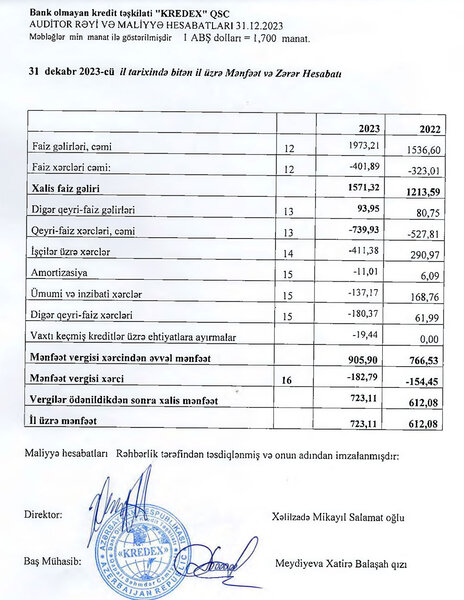 Bank olmayan kredit təşkilati "KREDEX" QSC
AUDİTOR RƏYİ VƏ MALİYYƏ HESABATLARI 31.12.2023
Məbləğlər min manat ilə göstərilmişdir 1 ABŞ dolları = 1,700 manat.
31 dekabr 2023-cü il tarixində bitən il üzrə Mənfəət və Zərər Hesabatı
2023 2022
Faiz gəlirləri, cəmi 12 1973,21 1536,60
Faiz xərcləri cəmi: 12 -401,89 -323,01
Xalis faiz gəliri 1571,32 1213,59
Digər qeyri-faiz gəlirləri 13 93,95 80,75
Qeyri-faiz xərcləri, cəmi 13 -739,93 -527,81
İşçilər üzrə xərclər 14 -411,38 290,97
Amortizasiya 15 -11,01 6,09
Ümumi və inzibati xərclər 15 -137,17 168,76
Digər qeyri-faiz xərcləri 15 -180,37 61,99
Vaxtı keçmiş kreditlər üzrə ehtiyatlara ayırmalar -19,44 0,00
Mənfəət vergisi xərcindən əvvəl mənfəət 905,90 766,53
Mənfəət vergisi xərci 16 -182,79 -154,45
Vergilər ödənildikdən sonra xalis mənfəət 723,11 612,08
İl üzrə mənfəət 723,11 612,08
Maliyyə hesabatları Rəhbərlik tərəfindən təsdiqlənmiş və onun adından imzalanmışdır:
Direktor: Xəlilzadə Mikayıl Salamat oğlu
«KREDEX»
Baş Mühasib: Meydiyeva Xatirə Balaşah qızı